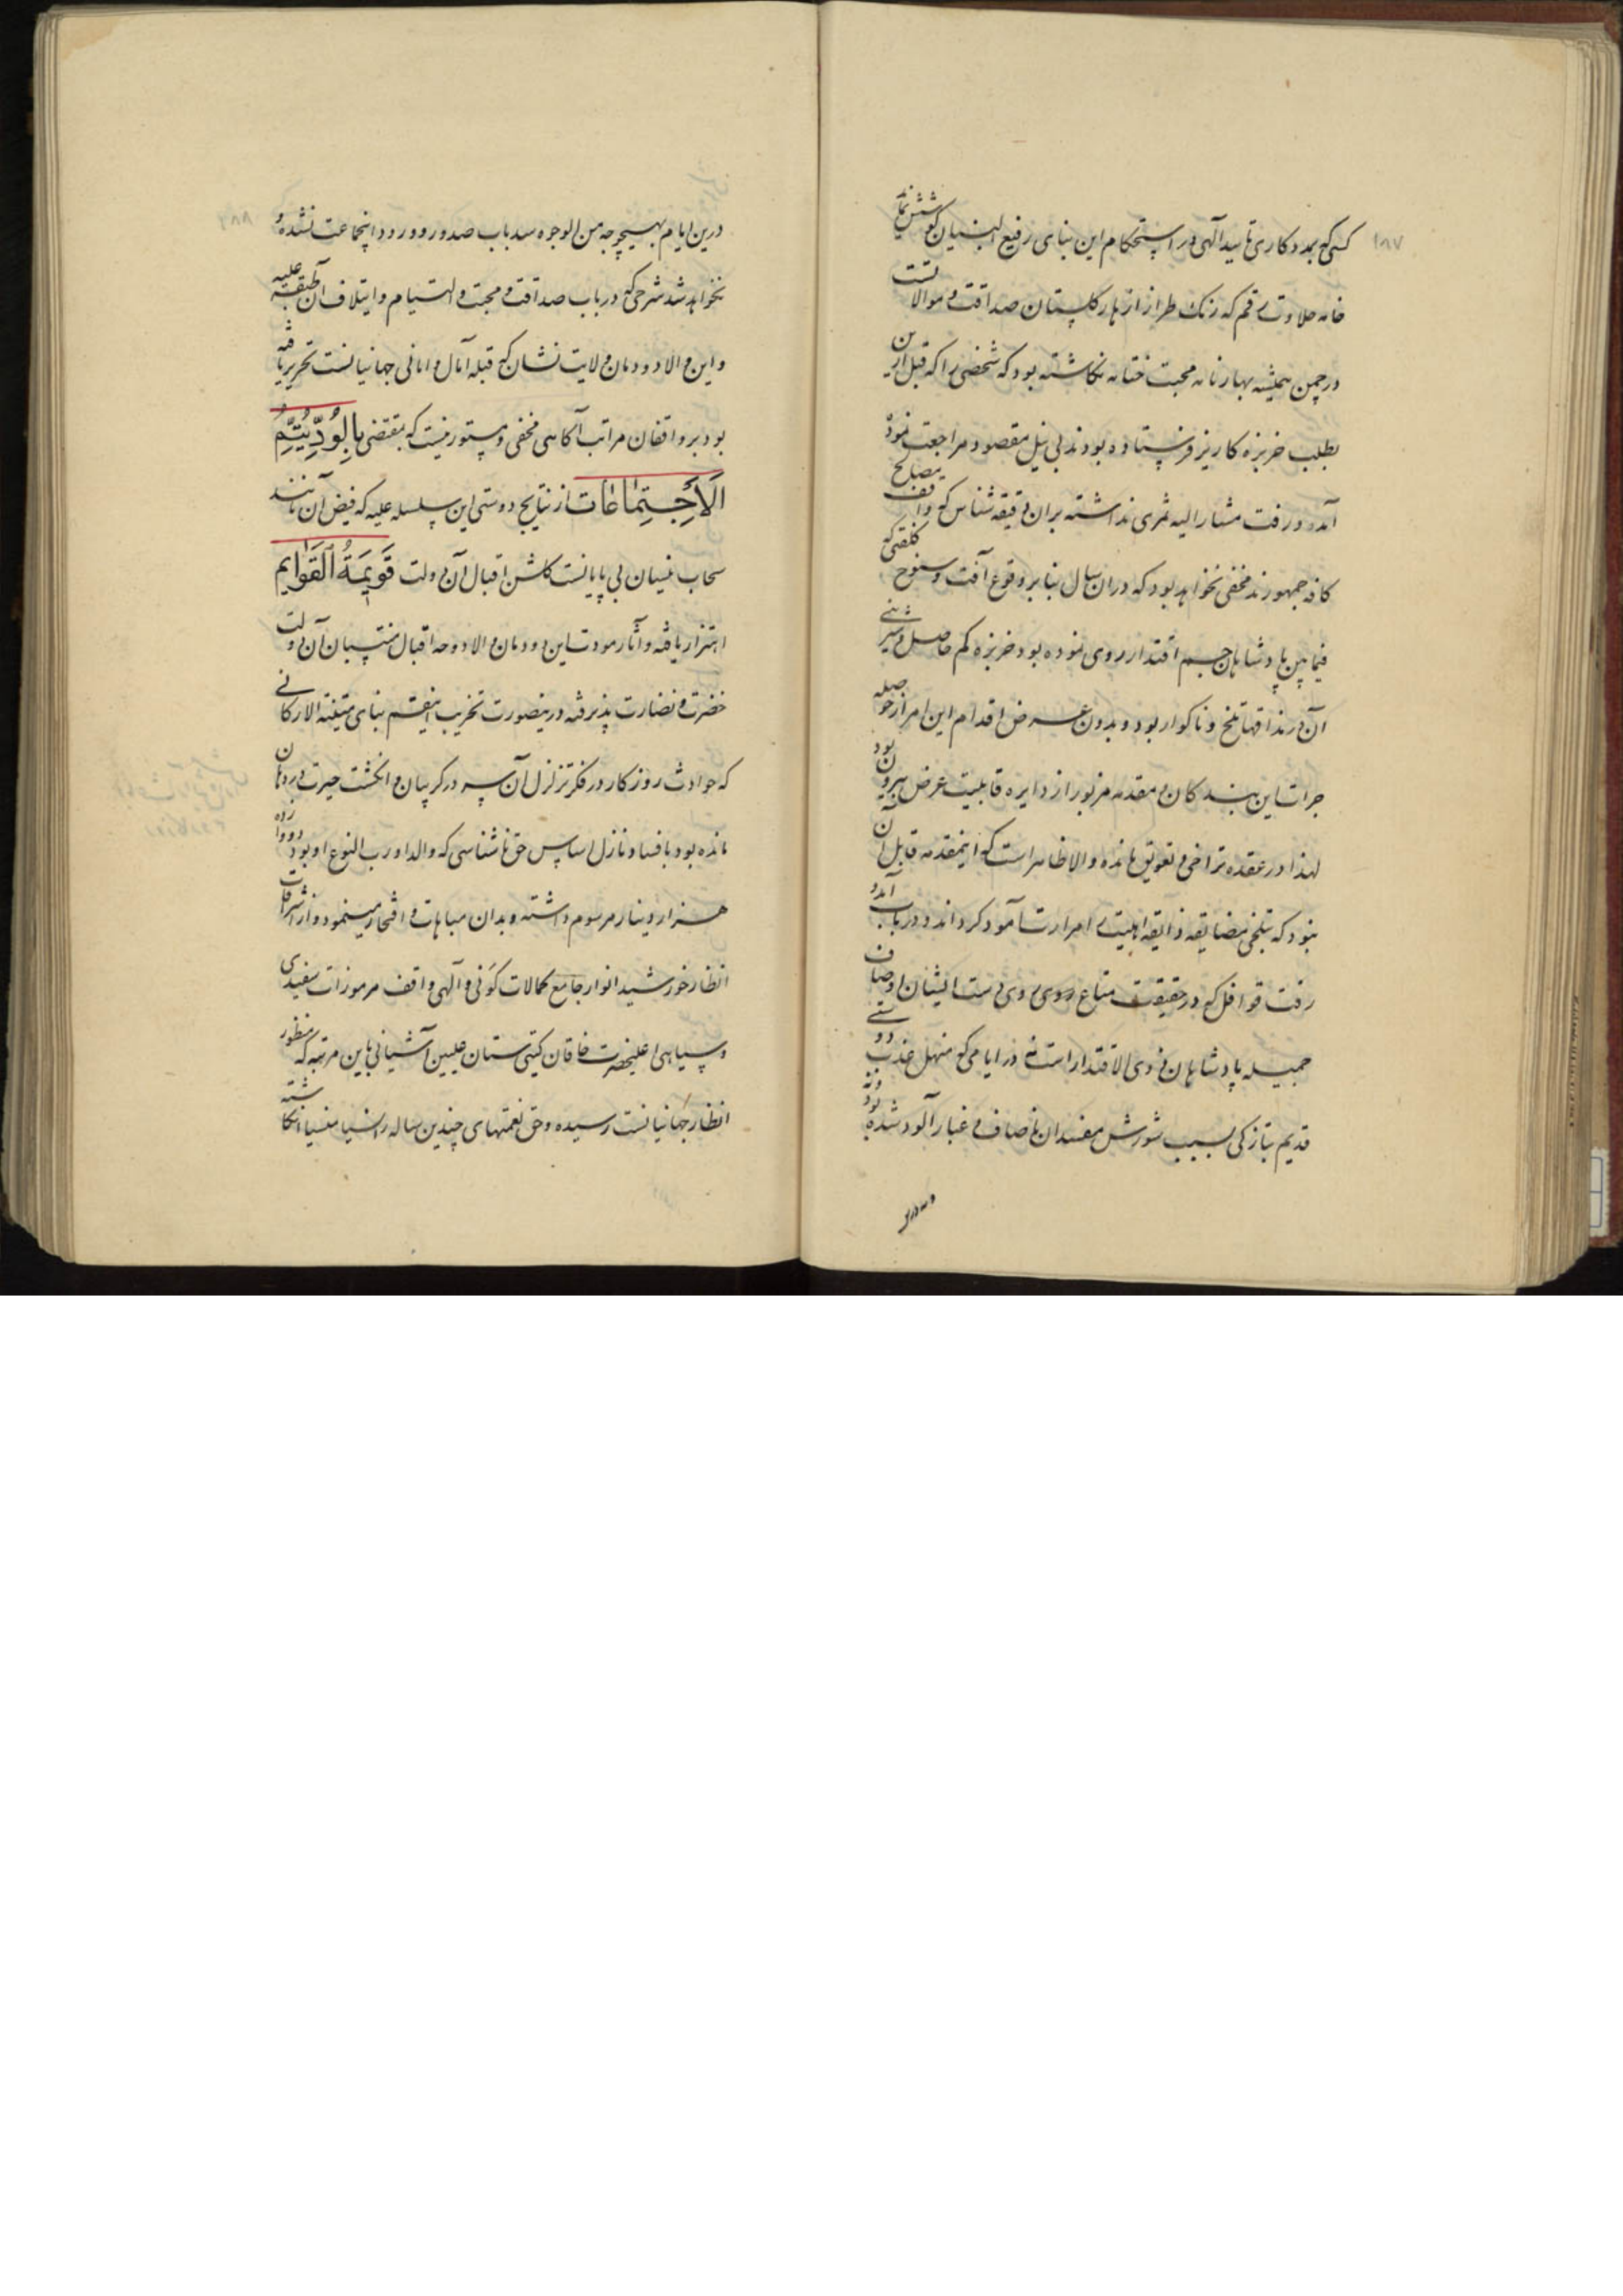 ۱۸۷
کسی که بمددکاری تایید آلهی در استحکام این بنای رفیع البنیان کوشش نماید
خامه حلاوت رقم که رنک طراز ازهار کلستان صداقت و موالاتست
در چمن همیشه بهار نامه محبت ختامه نکاشته بود که شخصی را که قبل ازین
بطلب خربزه کاریز فرستاده بودند بی نیل مقصود مراجعت نموده
آمد و رفت مشار الیه ثمری نداشته بران دقیقه شناس که واقف مصالح
کافه جمهورند مخفی نخواهد بود که دران سال بنابر وقوع آفت و سنوح کلفتی که
فیما بین پادشاهان جم اقتدار روی نموده بود خربزه کم حاصل و شیرینی
آن در مذاقها تلخ و ناکوار بود و بدون عرض اقدام این امر از حوصله
جرات این بندکان و مقدمه مزبور از دایره قابلیت عرض بیرون بود
لهذا در عقده تراخی و تعویق مانده والا ظاهر است که اینمقدمه قابل آن
نبود که بتلخی مضایقه ذایقه اهلیت را مرارت آمود کرداند و در باب آمد و
رفت قوافل که در حقیقت متاع روی دست ایشان اوصاف
جمیله پادشاهان ذوی الاقتدار است در ایامی که منهل عذب دوستی
قدیم بتازکی بسبب شورش مفسدان ناصاف و غبار آلود شده بود
۱۸۸
درین ایام بهیچوجه من الوجوه سد باب صدور و ورود اینجماعت نشده و
نخواهد شد شرحی که در باب صداقت و محبت و التیام و ایتلاف آن طبقه علیه
و این والا دودمان ولایت نشان که قبله آمال و امانی جهانیانست تحریر یافته
بود بر واقفان مراتب آکاهی مخفی و مستور نیست که بمقتضی بِالوُدِّ یَتِمُّ
الاَجتِماعات از نتایج دوستی این سلسله علیه که فیض آن مانند
سحاب نیسان بی پایانست کلشن اقبال آن دولت قَویمَةُ القَوایم
اهتزاز یافته و آثار مودت این دودمان والا دوحه اقبال منتسبان آن دولت
خضرت و نضارت پذیرفته درینصورت تخریب اینقسم بنای متینة الارکانی
که حوادث روزکار در فکر تزلزل آن سر در کریبان و انکشت حیرت در دهان
مانده بود بافساد نازل اساس حق ناشناسی که والد او رب النوع او بود
هزار دینار مرسوم داشته و بدان مباهات و افتخار مینمود و از اشراقات
انظار خورشید انوار جامع کمالات کونی و آلهی واقف مرموزات سفیدی
و سیاهی اعلیحضرت خاقان کیتی ستان علیین آشیانی باین مرتبه که منظور
انظار جهانیانست رسیده و حق نعمتهای چندین ساله را نسیا منسیا انکاشته